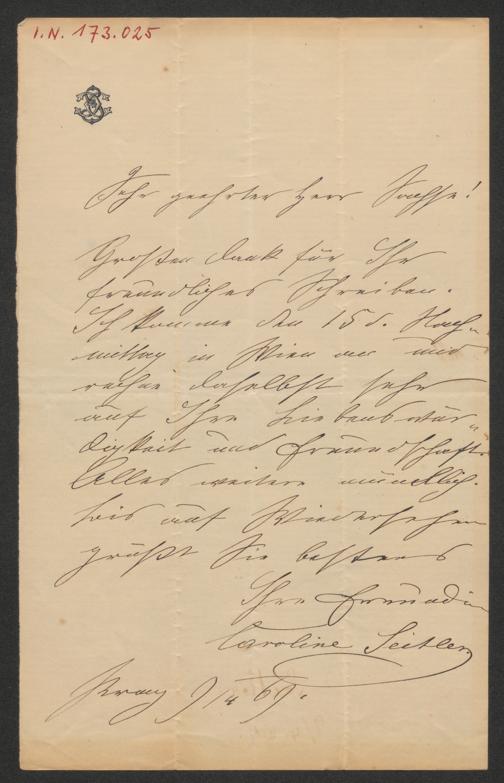 I.N. 173.025
Sehr geehrter Herr Sachse!
Großen Dank für Ihr
freundliches Schreiben.
Ich komme den 15 d. Nach-
mittag in Wien an und
rechne daselbst sehr
auf Ihre Liebenswür-
digkeit und Freundschaft.
Alles weitere mündlich.
bis auf Wiedersehen
grüßt Sie bestens
Ihre Freundin
Caroline Seitler
Prag 9/4 69.